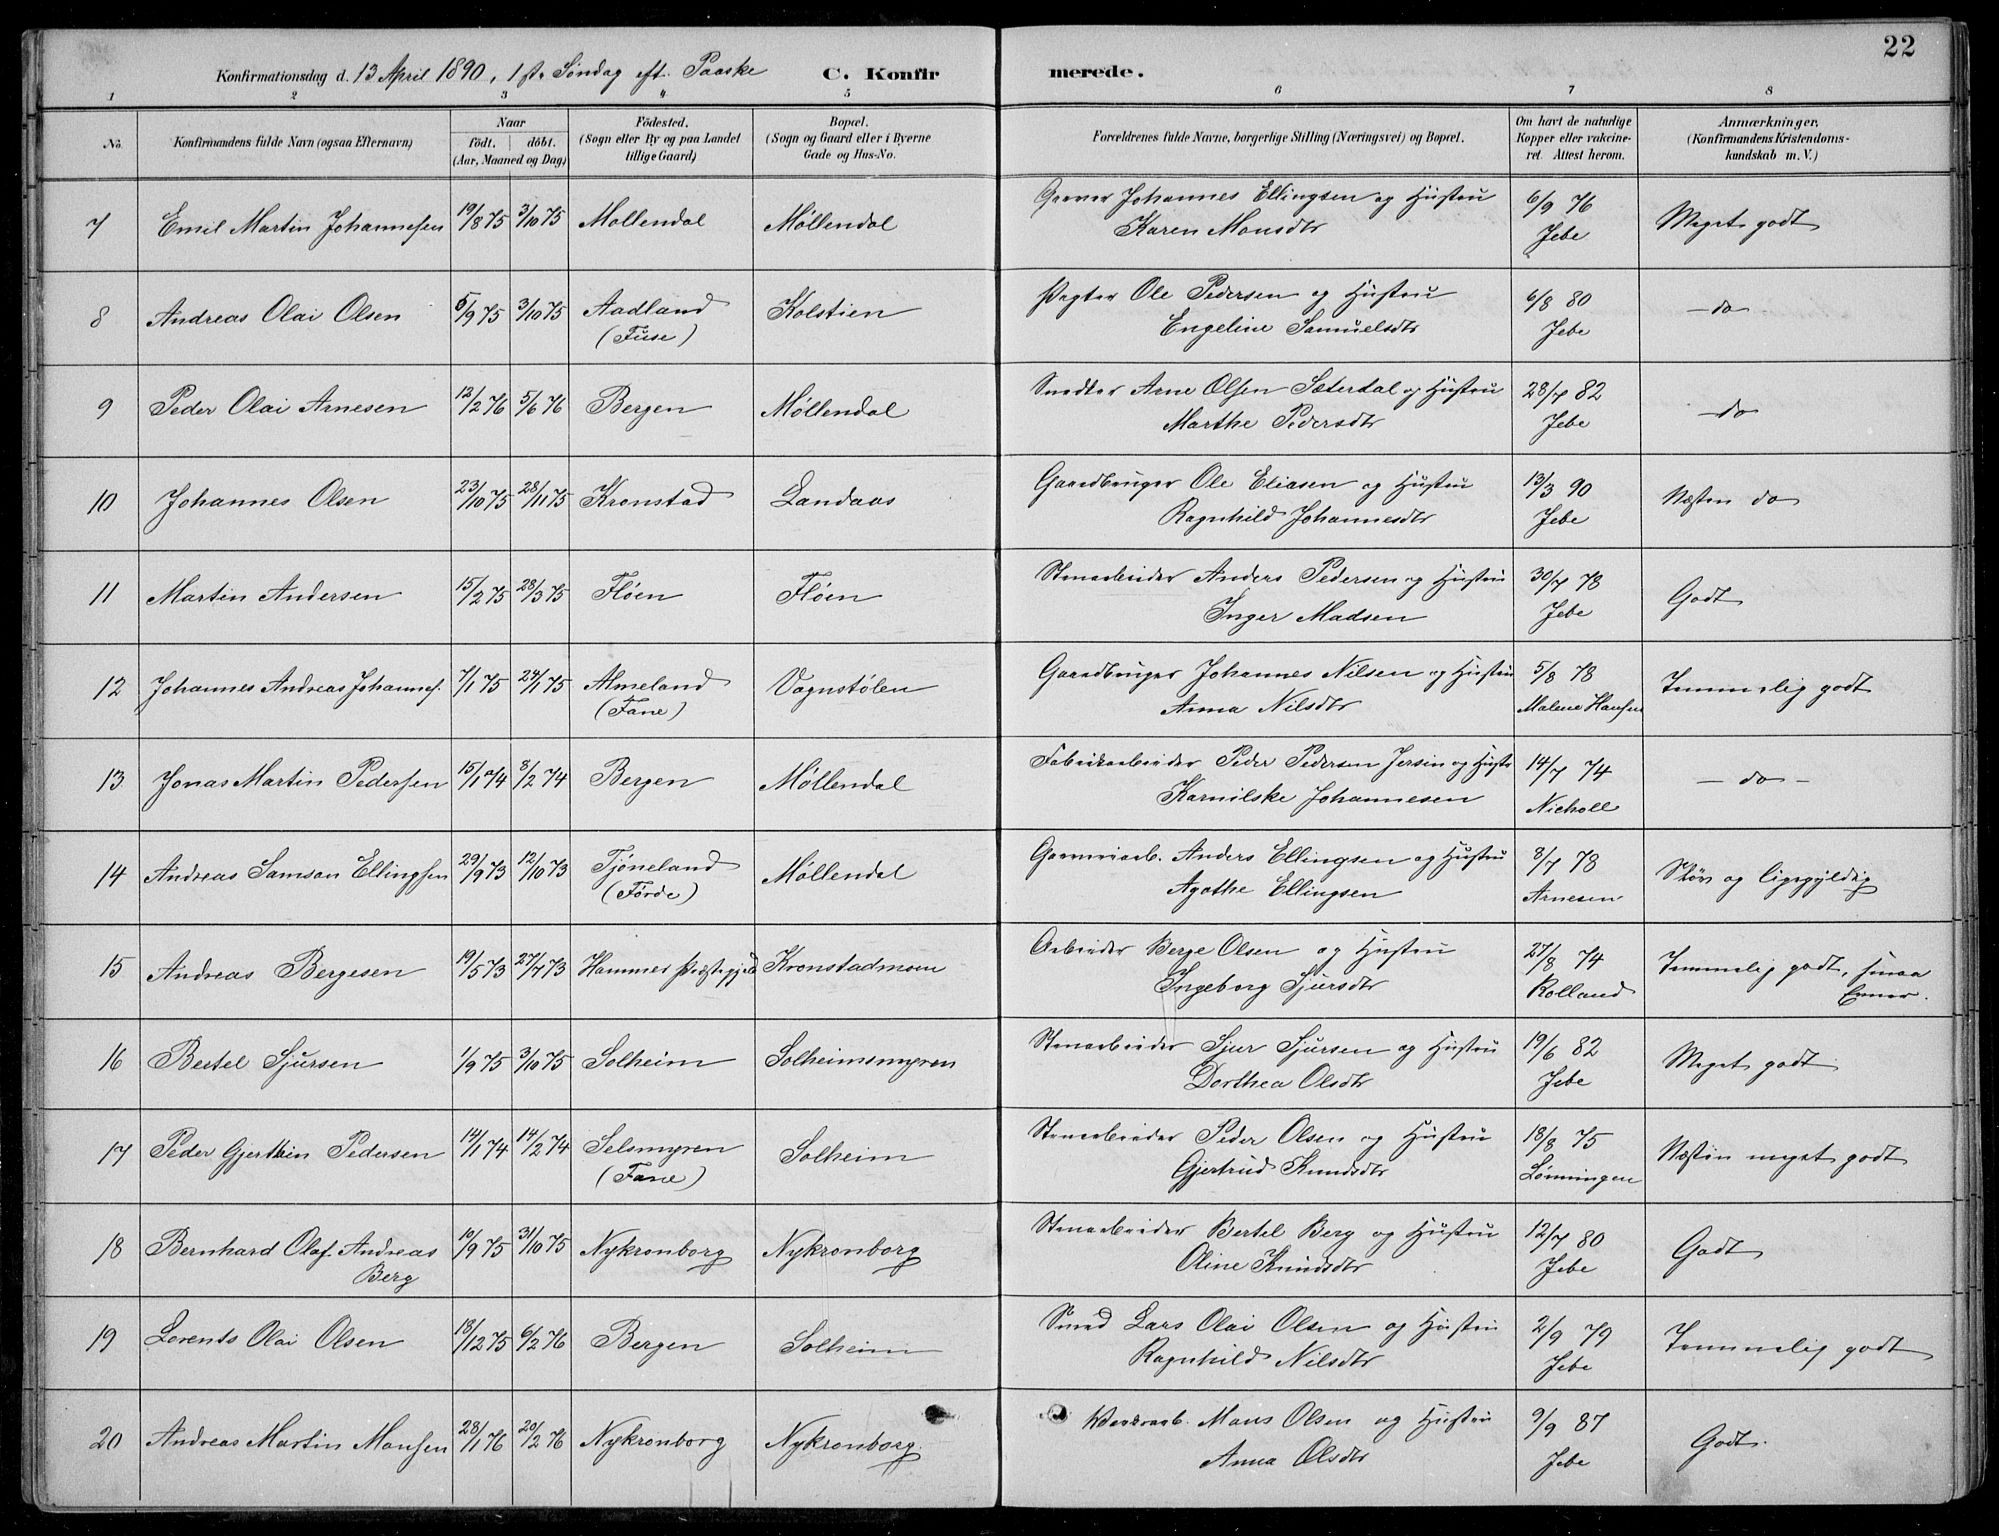 22
Konfirmationsdag d. 13 April 1890, 1ste Søndag eft. Paaske C. Konfir merede.
1 2 3 4 5 6 7 8
No. Konfirmandens fulde Navn (ogsaa Efternavn) Naar født. døbt. (Aar, Maaned og Dag) Fødested. (Sogn eller By og paa Landet tillige Gaard) Bopæl. (Sogn og Gaard eller i Byerne Gade og Hus-No. Forældrenes fulde Navne, borgerlige Stilling (Næringsvei) og Bopæl. Om havt de naturlige Kopper eller vakcineret. Attest herom. Anmærkninger, (Konfirmandens Kristendomskundskab m. V.)
7 Emil Martin Johannesen 19/8 75 3/10 75 Møllendal Møllendal Garver Johannes Ellingsen og Hustru 6/9 76 Meget godt
Karen Monsdtr Jebe
8 Andreas Olai Olsen 5/9 75 3/10 75 Aadland Kolstien Pagter Ole Pedersen og Hustru 6/8 80 – do
(Fuse) Engeline Samuelsdtr Jebe
9 Peder Olai Arnesen 12/2 76 5/6 76 Bergen Møllendal Arne Olsen Sæterdal og Hustru 28/7 82 – do
Marthe Pedersdtr Jebe
10 Johannes Olsen 23/10 75 28/11 75 Kronstad Landaas Gaardbruger Ole Eliasen og Hustru 13/3 90 Næsten do
Ragnhild Johannesdtr Jebe
11 Martin Andersen 15/2 75 28/3 75 Fløen Fløen Stenarbeider Anders Pedersen og Hustru 30/7 78 Godt
Inger Madsen Jebe
12 Johannes Andreas Johannes. 7/1 75 24/1 75 Almeland Vognstølen Gaardbruger Johannes Nilsen og Hustru 5/8 78 Temmelig godt
(Fane) Anna Nilsdtr Malene Hansen
13 Jonas Martin Pedersen 15/1 74 8/2 74 Bergen Møllendal Fabrikarbeider Peder Pedersen Jersin og Hustr 14/7 74 – do –
Karnilske Johannesen Nicholl
14 Andreas Samson Ellingsen 29/9 73 12/10 73 Tjöneland Møllendal Garveriarb. Anders Ellingsen og Hustru 8/7 78 Sløv og ligegyldig
(Førde) Agathe Ellingsen Arnesen
15 Andreas Bergesen 19/5 73 27/7 73 Hammer Præstegjeld Kronstadmoen Arbeider Berge Olsen og Hustru 27/8 74 Temmelig godt, smaa
Ingeborg Sjursdtr Rolland Evner.
16 Bertel Sjursen 1/9 75 3/10 75 Solheim Solheimsmyren Stenarbeider Sjur Sjursen og Hustru 19/6 82 Meget godt
Dorthea Olsdtr Jebe
17 Peder Gjerthin Pedersen 14/1 74 14/2 74 Selsmyren Solheim Stenarbeider Peder Olsen og Hustru 18/8 75 Næsten meget godt
(Fane) Gjertrud Knudsdtr Lønningen
18 Bernhard Olaf Andreas 10/9 75 31/10 75 Nykronborg Nykronborg Stenarbeider Bertel Berg og Hustru 12/7 80 Godt
Berg Oline Knudsdtr Jebe
19 Lorents Olai Olsen 18/12 75 6/2 76 Bergen Solheim Smed Lars Olai Olsen og Hustru 2/9 79 Temmelig godt
Ragnhild Nilsdtr Jebe
20 Andreas Martin Monsen 28/1 76 20/2 76 Nykronborg Nykronborg. Værkarb. Mons Olsen og Hustru 9/9 87 Godt.
Anna Olsdtr Jebe